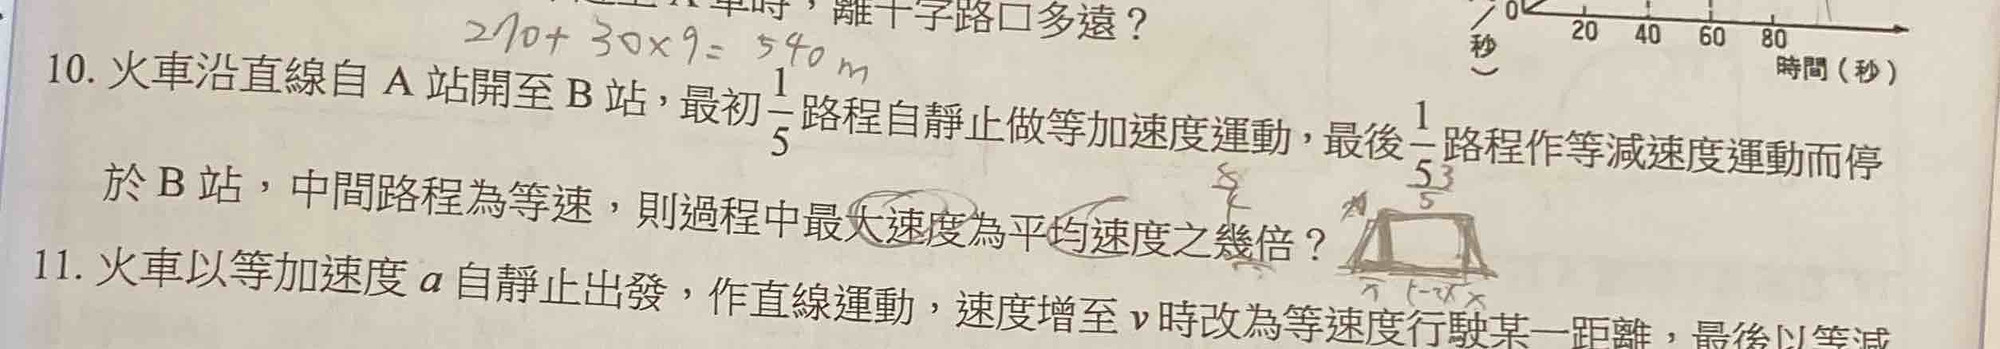 車時，離十字路口多遠？
270+30×9=540m
0 20 40 60 80
秒）
時間（秒）
10. 火車沿直線自 A 站開至 B 站，最初1/5路程自靜止做等加速度運動，最後1/5路程作等減速度運動而停
於 B 站，中間路程為等速，則過程中最大速度為平均速度之幾倍？
3/5
11. 火車以等加速度 a 自靜止出發，作直線運動，速度增至 v 時改為等速度行駛某一距離，最後以等減